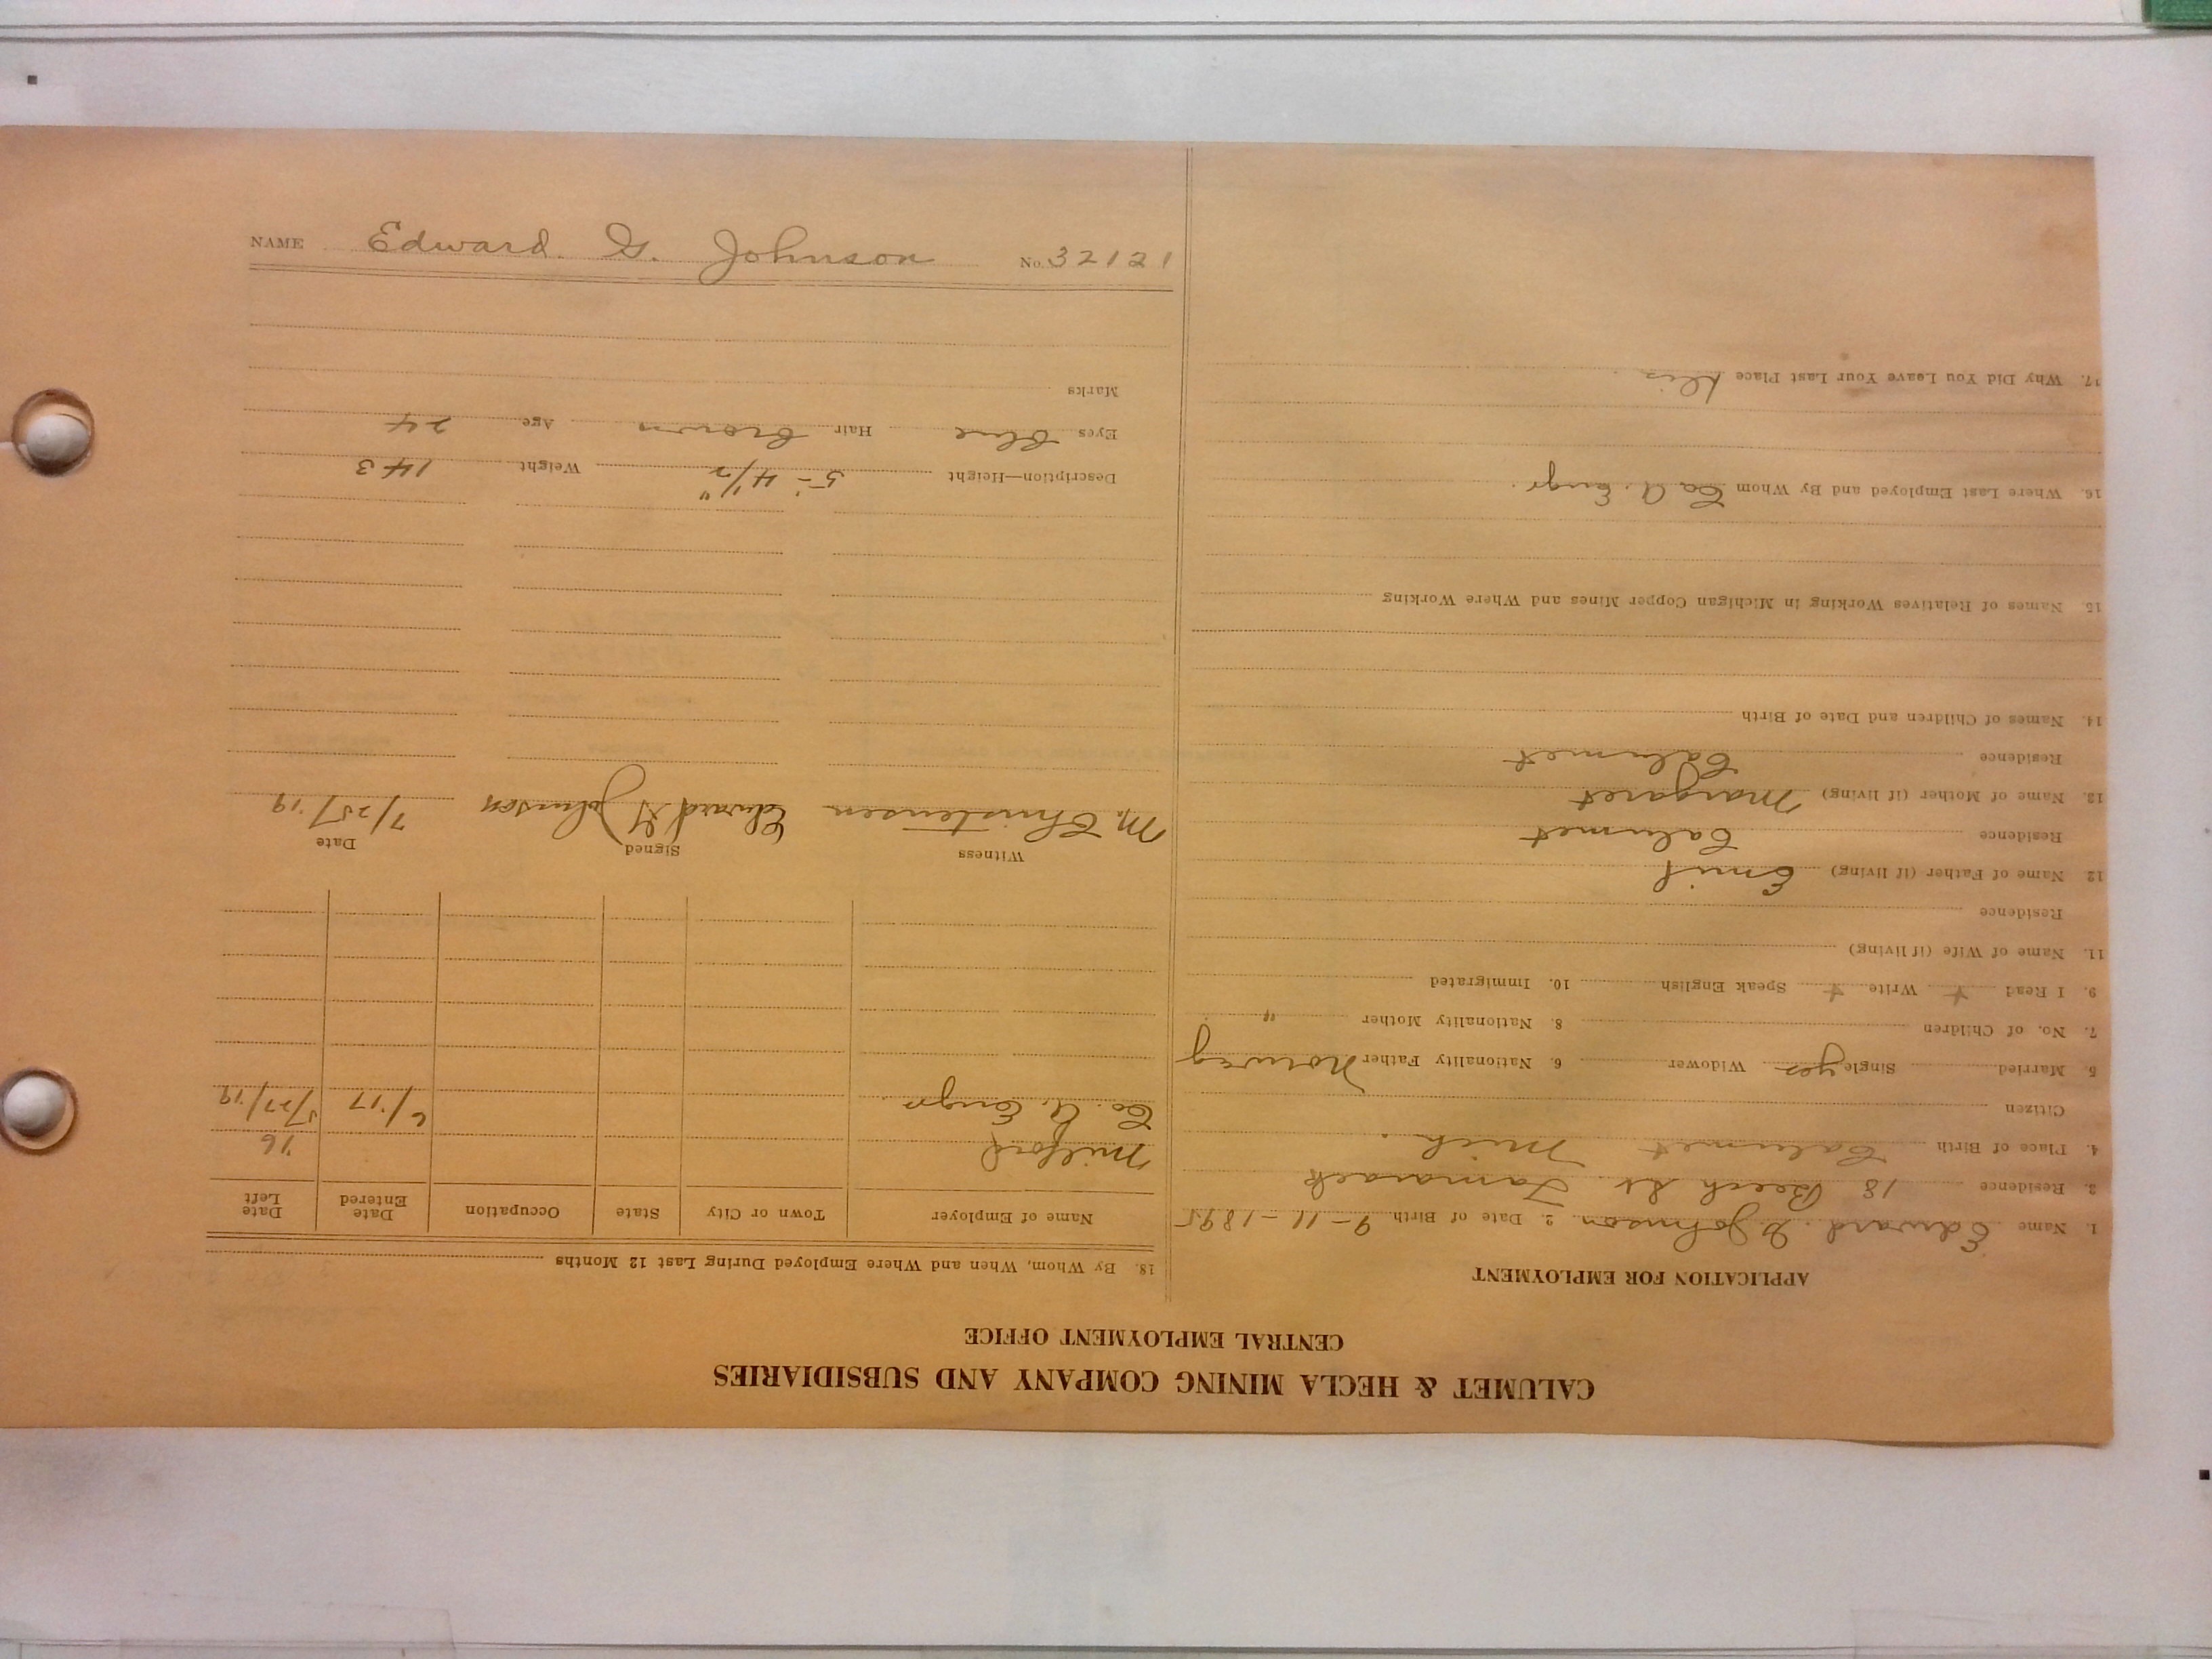 CALUMET & HECLA MINING COMPANY AND SUBSIDIARIES
CENTRAL EMPLOYMENT OFFICE
APPLICATION FOR EMPLOYMENT
1. Name Edward. G. Johnson 2. Date of Birth 9-11-1895
3. Residence 18 Beech St. Tamarack
4. Place of Birth Calumet Mich.
Citizen
5. Married Single yes Widower 6. Nationality Father Norway
7. No. of Children 8. Nationality Mother "
9. I Read + Write + Speak English 10. Immigrated
11. Name of Wife (if living)
Residence
12 Name of Father (if living) Emil
Residence Calumet
13. Name of Mother (if living) Margaret
Residence Calumet
14. Names of Children and Date of Birth
15. Names of Relatives Working in Michigan Copper Mines and Where Working
16. Where Last Employed and By Whom Co A. Engr.
17. Why Did You Leave Your Last Place Dis
18. By Whom, When and Where Employed During Last 12 Months
Name of Employer Town or City State Occupation Date Entered Date Left
Milford '16
Co. A. Engr. 6/'17 5/27/'19
Witness Signed Date
M. Christensen Edward G Johnson 7/25/'19
Description—Height 5'- 4 1/2" Weight 143
Eyes Blue Hair brown Age 24
Marks
NAME Edward. G. Johnson No. 32121